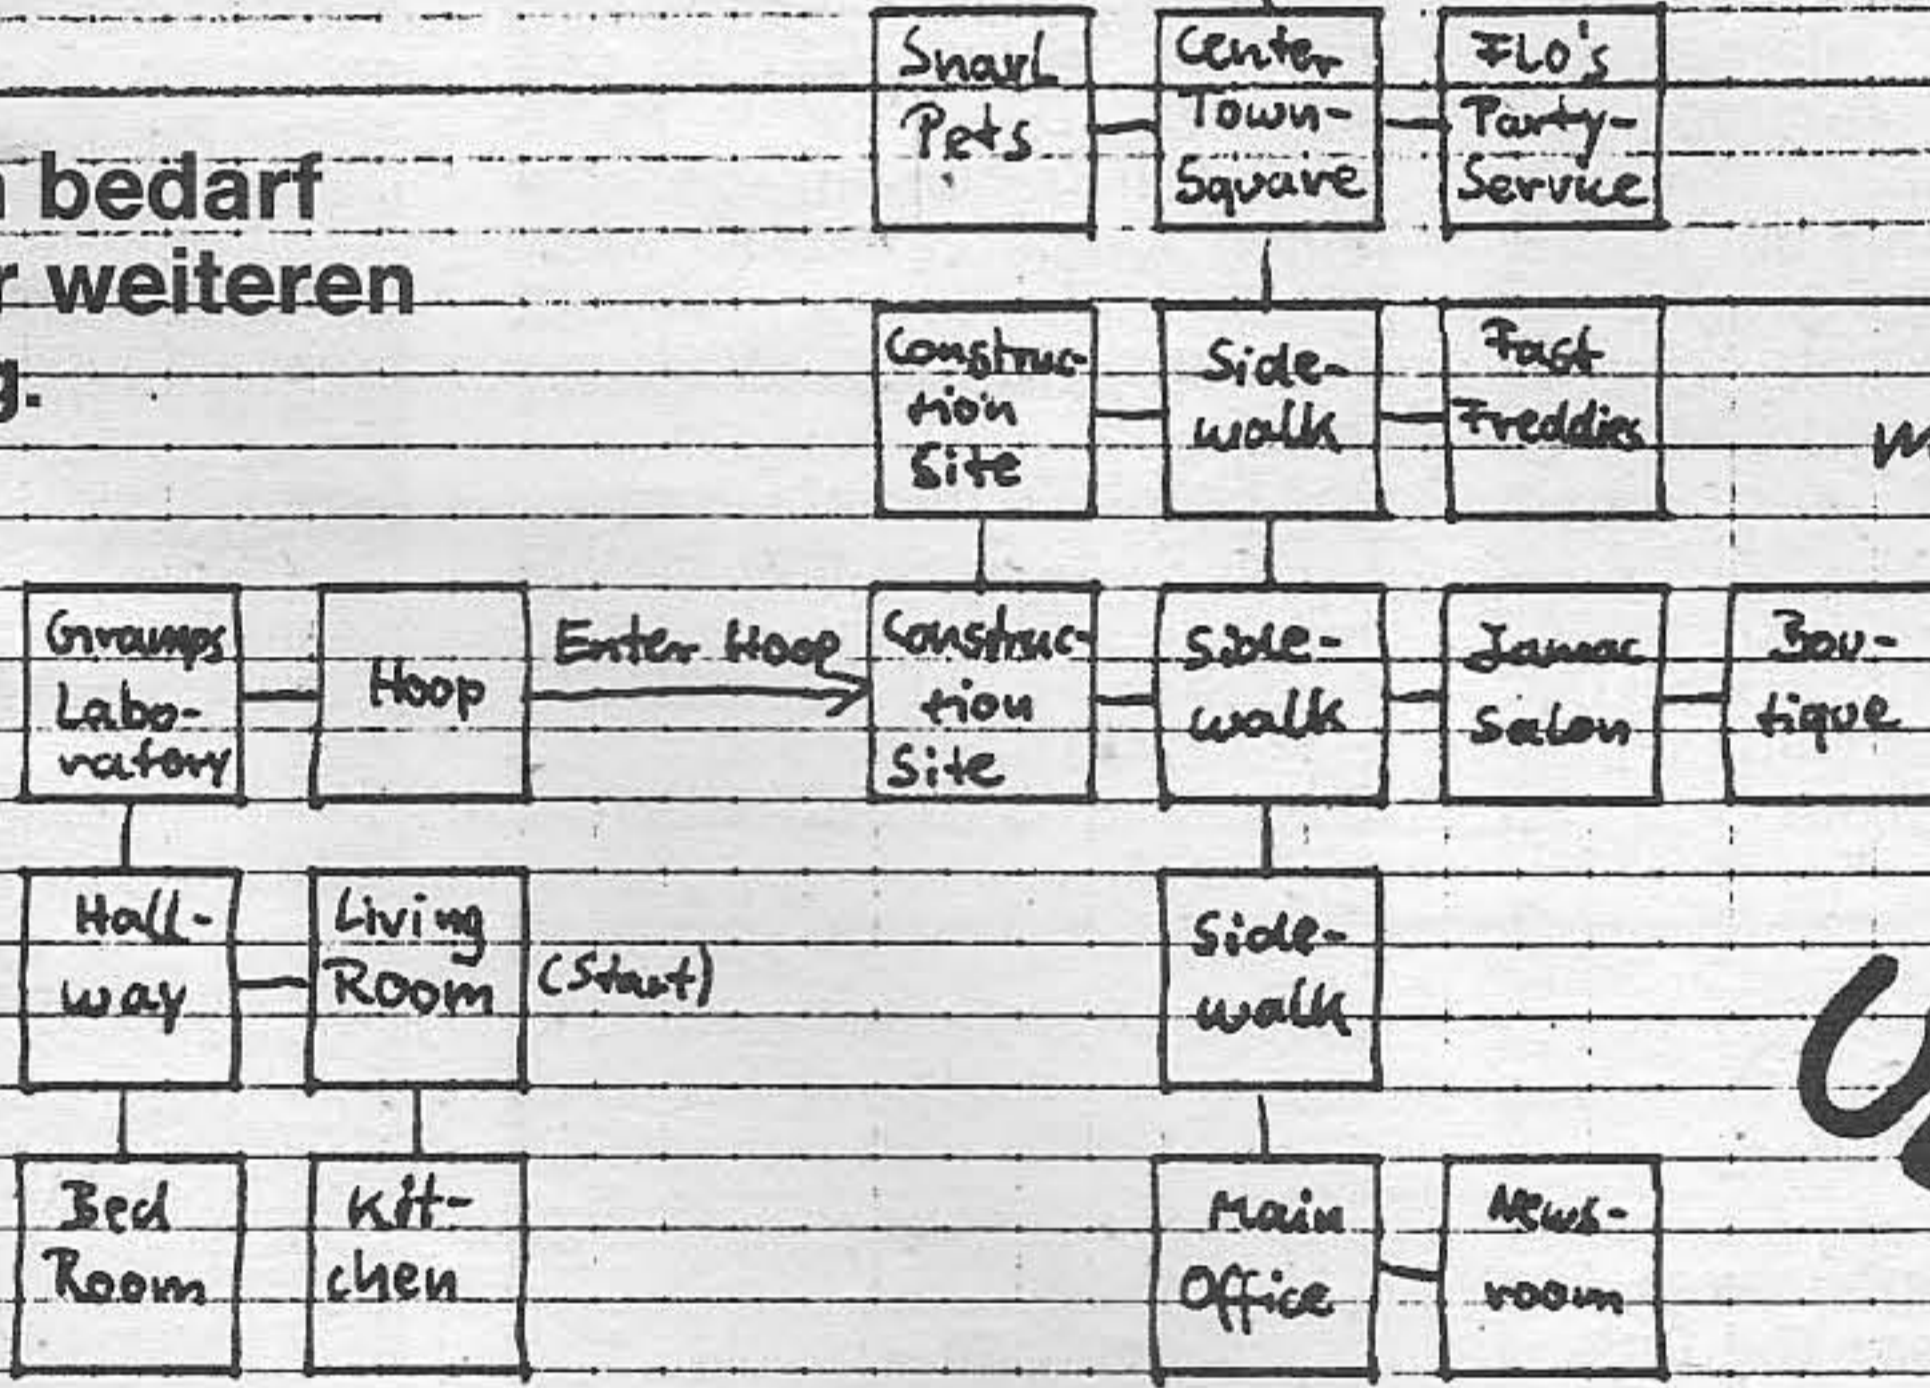 Snarl
Pets
Center
Town-
Square
FLO's
Party-
Service
bedarf
weiteren
g.
Construc-
tion
Site
Side-
walk
Fast
Freddies
Gramps
Labo-
ratory
Hoop
Enter Hoop
Construc-
tion
Site
Side-
walk
Jamac
Salon
Bou-
tique
Hall-
way
Living
Room
(Start)
Side-
walk
Bed
Room
Kit-
chen
Main
Office
News-
room